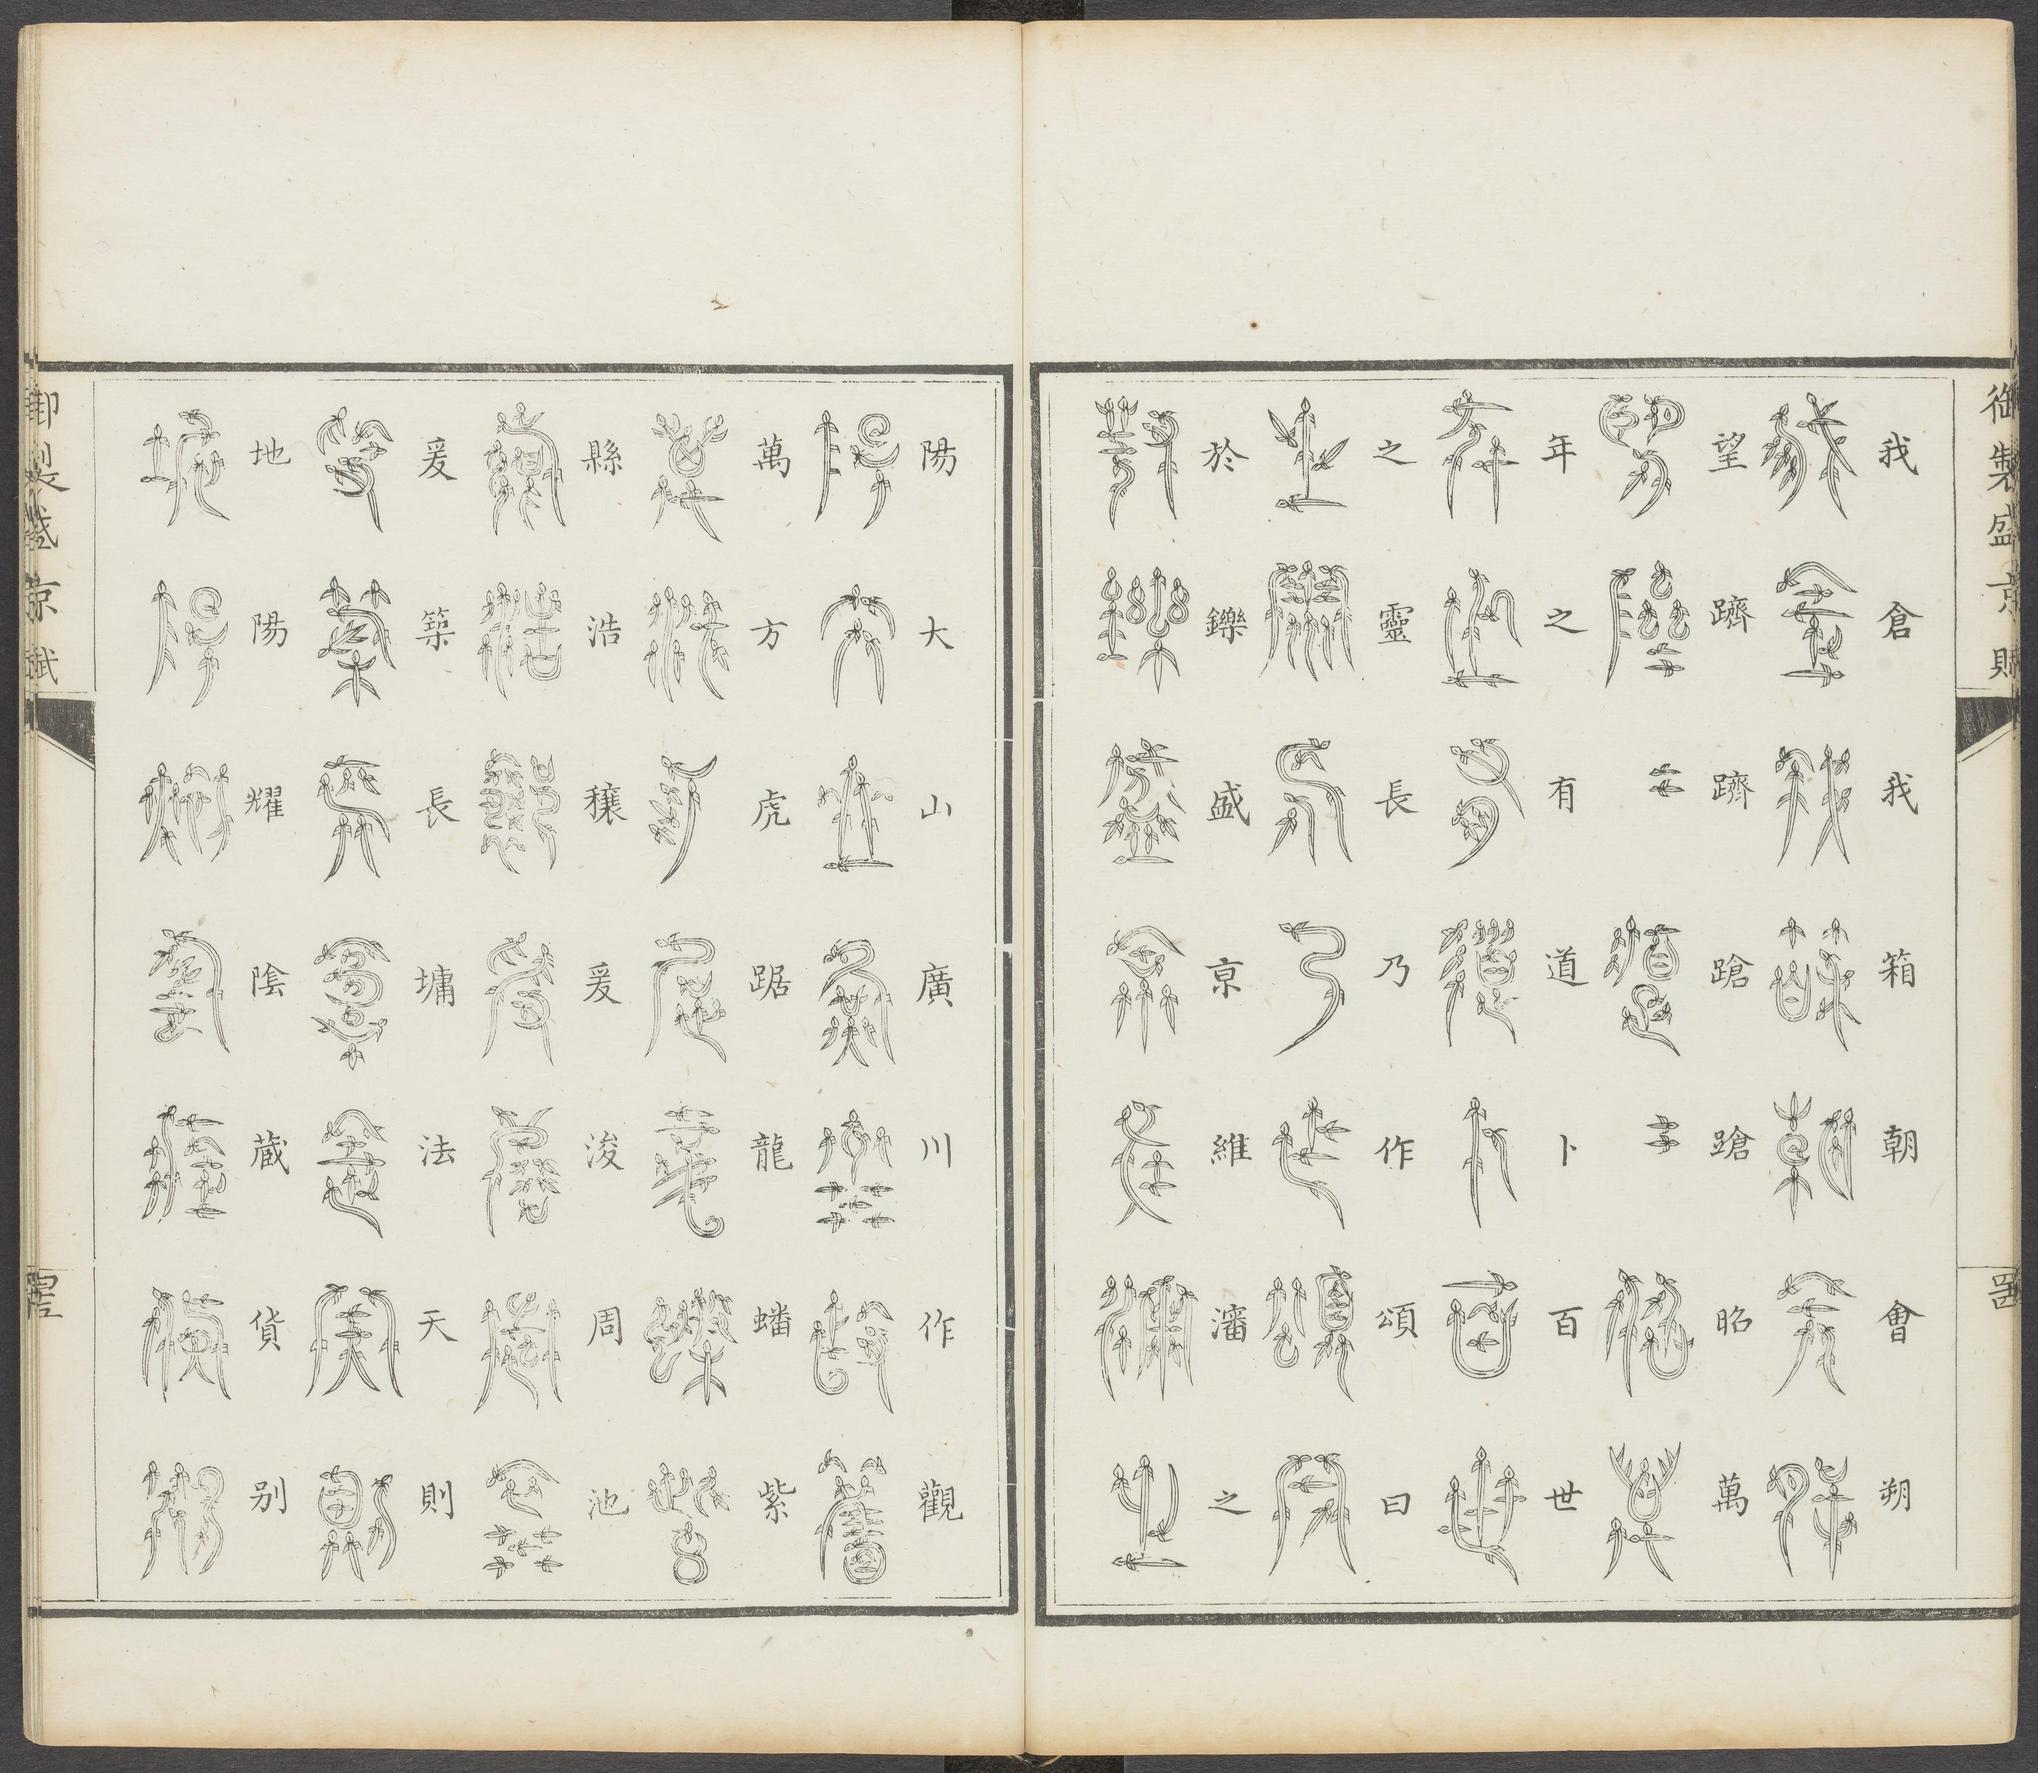 御製盛京賦
我倉我箱朝會朔
望躋躋蹌蹌昭萬
年之有道卜百世
之靈長乃作頌曰
於鑠盛京維瀋之
陽大山廣川作觀
萬方虎踞龍蟠紫
縣浩穰爰浚周池
爰築長墉法天則
地陽耀陰藏貨別
御製盛京賦